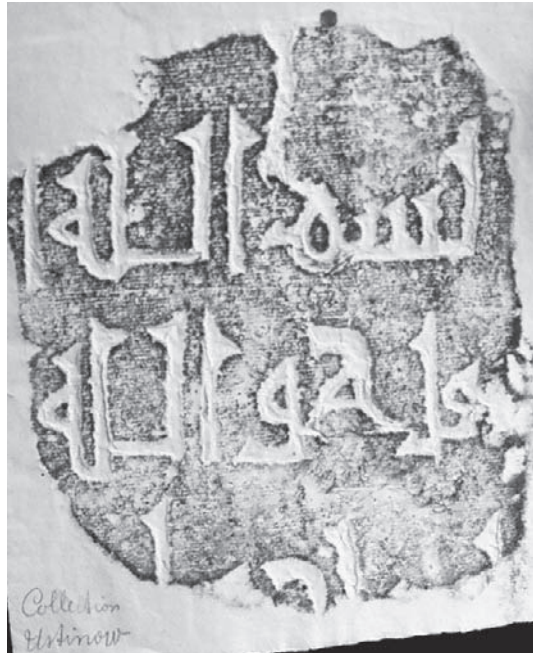 بسم الله ا
قل هو الله
Collection
Ustinow